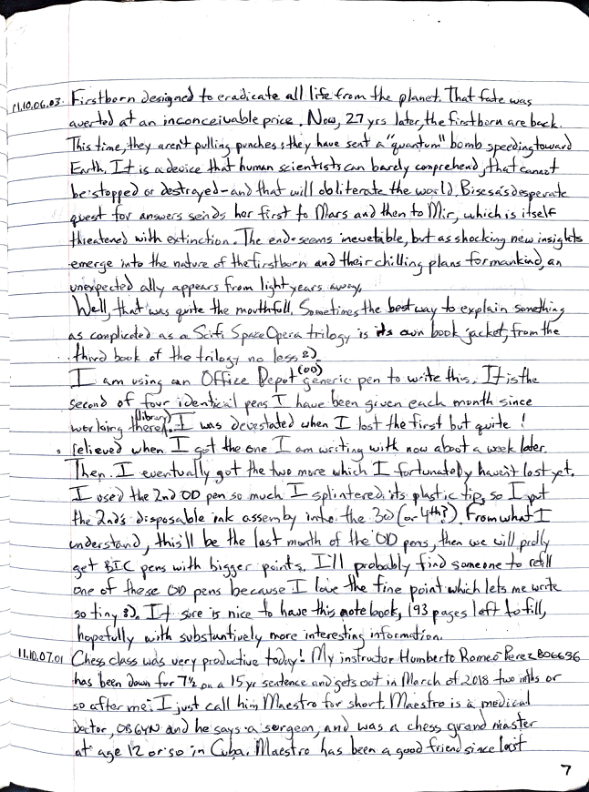 11.10.06.03. Firstborn designed to eradicate all life from the planet. That fate was
averted at an inconceivable price. Now, 27 yrs later, the firstborn are back.
This time, they aren't pulling punches: they have sent a "quantum" bomb speeding toward
Earth. It is a device that human scientists can barely comprehend, that cannot
be stopped or destroyed - and that will obliterate the world. Bisesa's desperate
quest for answers sends her first to Mars and then to Mir, which is itself
threatened with extinction. The end seems inevetable, but as shocking new insights
emerge into the nature of the firstborn and their chilling plans for mankind, an
unexpected ally appears from light years away.
Well, that was quite the mouthfull. Sometimes the best way to explain something
as complicated as a Scifi Space Opera trilogy is its own book jacket, from the
third book of the trilogy no less 8).
I am using an Office Depot (OD) generic pen to write this. It is the
second of four identical pens I have been given each month since
working there (library). I was devestated when I lost the first but quite
relieved when I got the one I am writing with now about a week later.
Then I eventually got the two more which I fortunately haven't lost yet.
I used the 2nd OD pen so much I splintered its plastic tip, so I put
the 2nd's disposable ink assembly into the 3rd (or 4th?). From what I
understand, this'll be the last month of the OD pens, then we will prolly
get BIC pens with bigger points. I'll probably find someone to refill
one of these OD pens because I love the fine point which lets me write
so tiny 8). It sure is nice to have this notebook, 193 pages left to fill,
hopefully with substantively more interesting information.
11.10.07.01 Chess class was very productive today! My instructor Humberto Romeo Perez B06636
has been down for 7½ on a 15 yr sentence and gets out in March of 2018 two mths or
so after me. I just call him Maestro for short. Maestro is a medical
doctor, OBGYN and he says a surgeon, and was a chess grand master
at age 12 or so in Cuba. Maestro has been a good friend since last
7